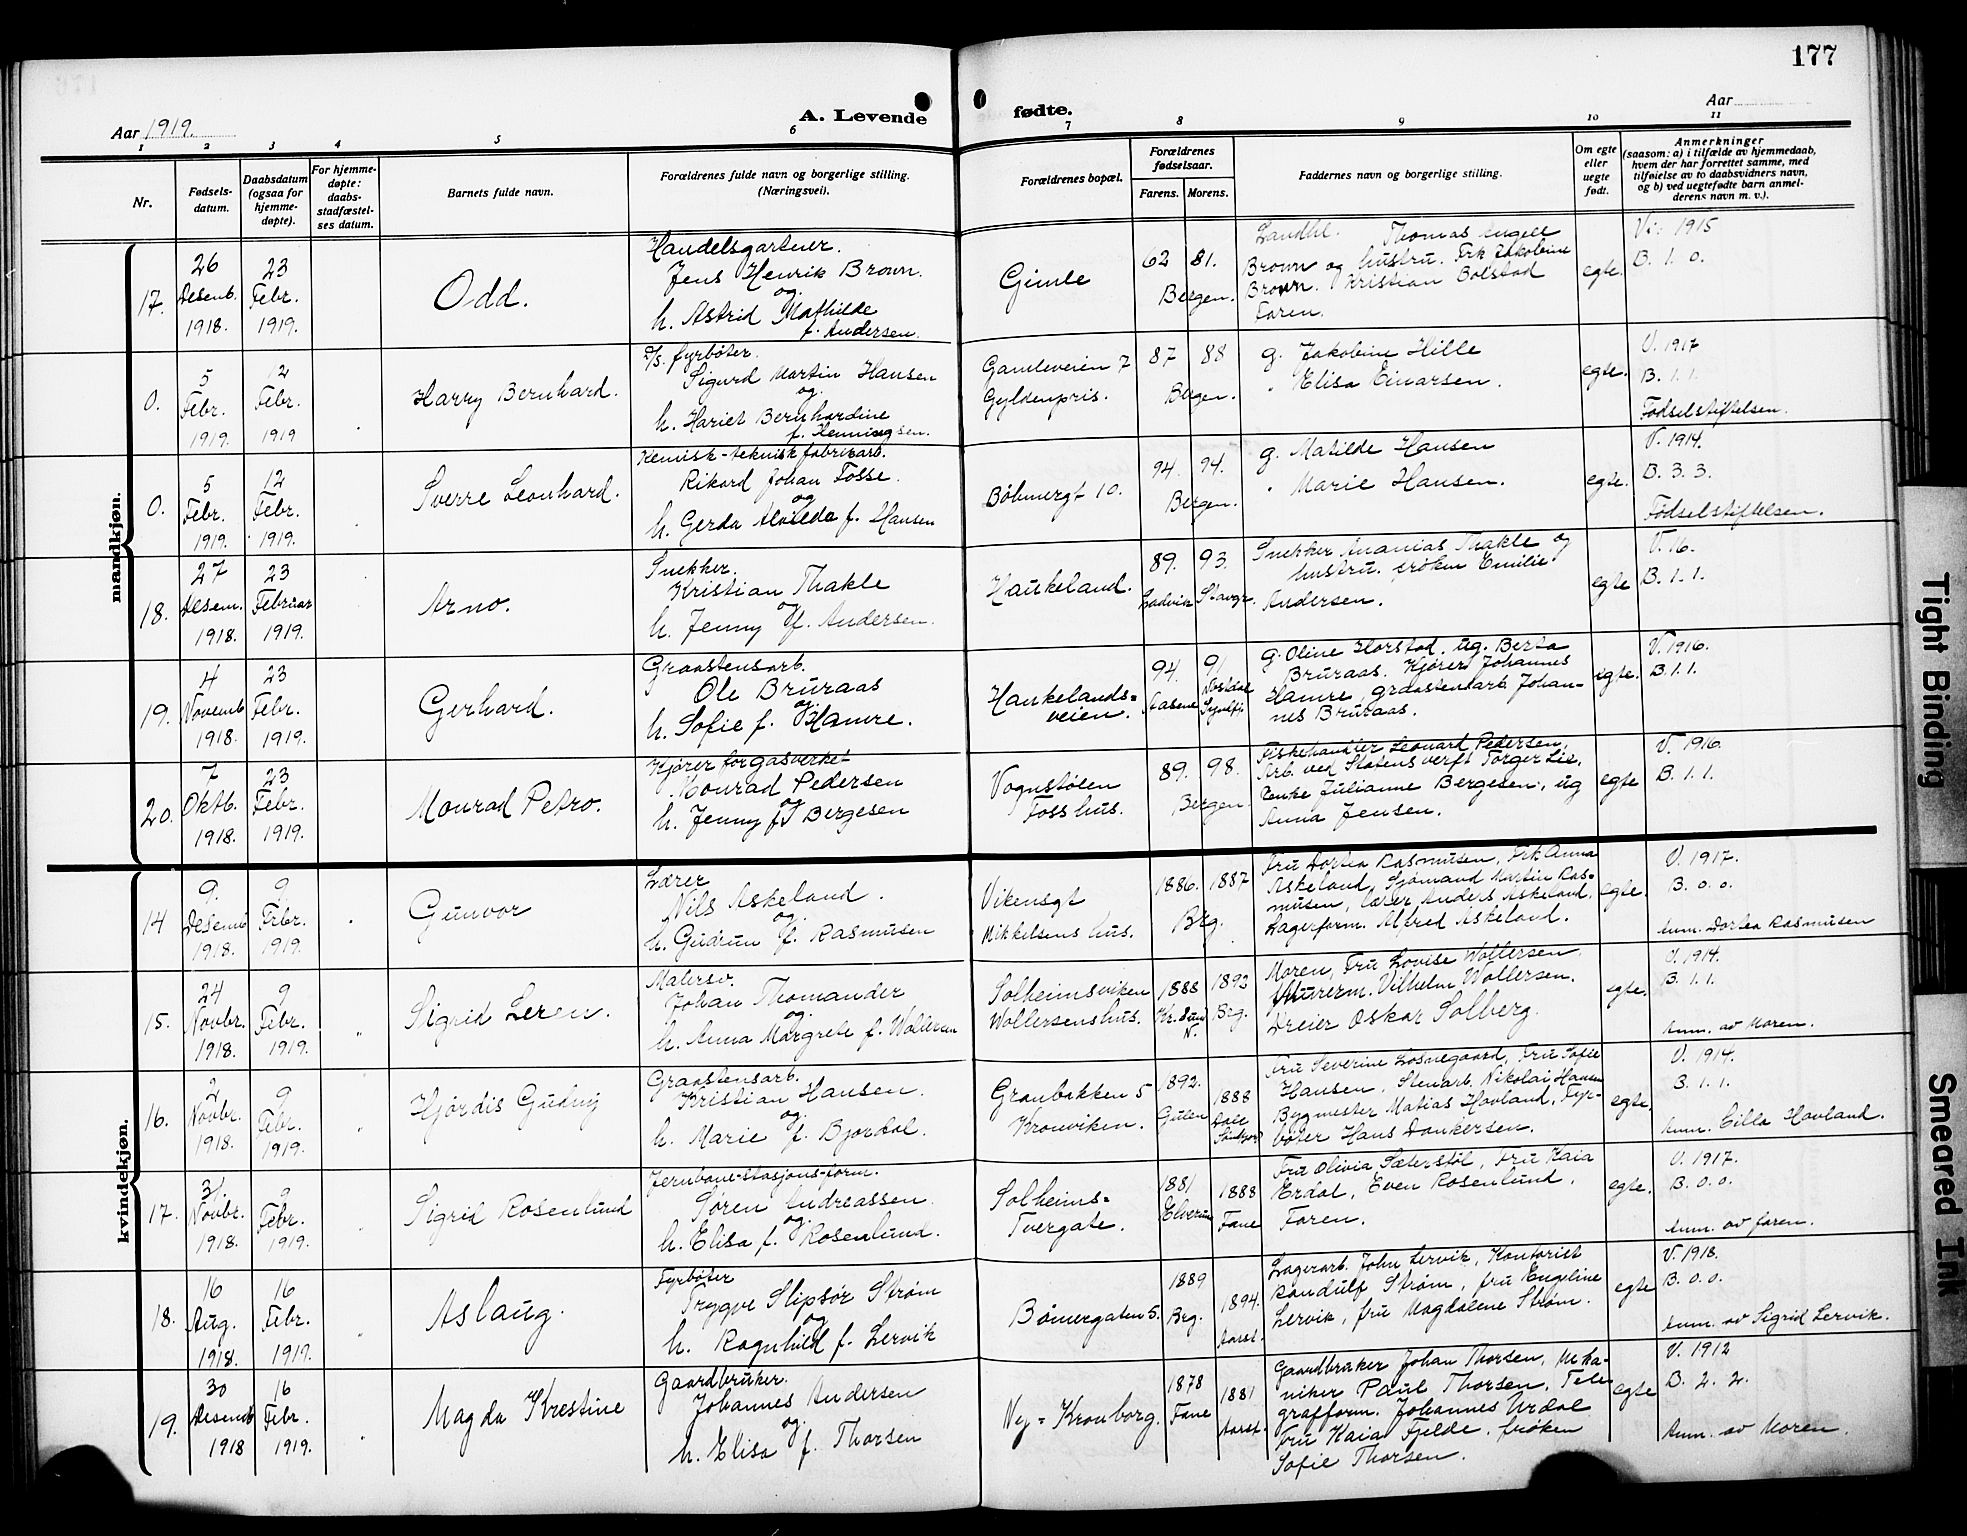 177
A. Levende fødte.
Aar 1919.
Aar
1 2 3 4 5 6 7 8 9 10 11
Nr.
Fødsels-
datum.
Daabsdatum
(ogsaa for
hjemme-
døpte).
For hjemme-
døpte:
daabs-
stadfæstel-
ses datum.
Barnets fulde navn.
Forældrenes fulde navn og borgerlige stilling.
(Næringsvei).
Forældrenes bopæl.
Forældrenes
fødselsaar.
Farens. Morens.
Faddernes navn og borgerlige stilling.
Om egte
eller
uegte
født.
Anmerkninger
(saasom: a) i tilfælde av hjemmedaab,
hvem der har forrettet samme, med
tilføielse av to daabsvidners navn,
og b) ved uegtefødte barn anmel-
derens navn m. v.).
mandkjøn.
17.
26
Desemb.
1918.
23
Febr.
1919.
Odd.
Handelsgartner.
Jens Henrik Brown.
og
h. Astrid Mathilde
f. Andersen.
Gimle
62 81.
Bergen.
Landhl. Thomas Angell
Brown og hustru. Frk Jakobine
Brown. Kristian Bolstad
Faren.
egte.
Vi: 1915
B. 1. 0.
0.
5
Febr.
1919.
12
Febr.
1919
Harry Bernhard.
D/S. fyrbøter.
Sigurd Martin Hansen
og
h. Hariet Bernhardine
f. Henningsen.
Gamleveien 7
Gyldenpris.
87 88
Bergen.
g. Jakobine Hille
" Elisa Einarsen.
egte.
V. 1917
B. 1. 1.
Fødselstiftelsen.
0.
5
Febr.
1919.
12
Febr.
1919.
Sverre Leonhard.
Kemisk-teknisk fabrikarb.
Rikard Johan Fosse.
og
h. Gerda Alvilde f. Hansen
Böhmergt 10.
94. 94.
Bergen.
g. Matilde Hansen
" Marie Hansen.
egte.
V. 1914.
B. 3. 3.
Fødselstiftelsen.
18.
27
Desem.
1918.
23
Februar
1919.
Arno.
Snekker.
Kristian Thakle
og
h. Jenny f. Andersen.
Haukeland.
89. 93.
Ladvik Stavgr.
Snekker Ananias Thakle og
hustru. frøken Emilie
Andersen.
egte
V. 16.
B. 1. 1.
19.
4
Novemb
1918.
23
Febr.
1919.
Gerhard.
Graastensarb.
Ole Bruraas
og
h. Sofie f. Hamre.
Haukelands=
veien.
94. 91
Aasene
g. Oline Horstad, ug. Berta
Bruraas. Kjører Johannes
Hamre, graastensarb. Johan-
nes Bruraas.
egte.
V. 1916.
B. 1. 1.
20.
7
Oktb.
1918.
23
Febr.
1919.
Monrad Petro.
Kjører for gasverket
Konrad Pedersen
og
h. Jenny f. Bergesen
Vognstølen
Foss hus.
89. 98.
Bergen.
Fiskehandler Leonard Pedersen,
Arb. ved Statens verft Torger Lie,
Enke Julianne Bergesen, ug
Anna Jensen.
egte
V. 1916.
B. 1. 1.
kvindekjøn.
14
9.
Desemb
1918.
9
Febr.
1919.
Gunvor
Lærer
Nils Askeland.
og
h. Gudrun f. Rasmusen
Vikensgt
Mikkelsens hus.
1886. 1887
Brg.
Fru Dortea Rasmusen, Frk Anna
Askeland, Sjømand Martin Ras-
musen, lærer Anders Askeland,
Lagerform. Alfred Askeland.
egte.
V. 1917.
B. 0. 0.
Anm. Dortea Rasmusen
15.
24
Novbr.
1918.
9
Febr.
1919.
Sigrid Leren.
Malersv.
Johan Thomander
og
h. Anna Margrete f. Wollersen
Solheimsviken
Wollersenshus.
1888 1892
Kr. Sund N. Brg.
Moren, Fru Lovise Wollersen.
Murerm. Vilhelm Wollersen.
Dreier Oskar Solberg.
egte.
V. 1914.
B. 1. 1.
Anm. av Moren.
16.
2
Novbr.
1918.
9
Febr.
1919.
Hjørdis Gudny
Graastensarb.
Kristian Hansen.
og
h. Marie f. Bjordal.
Granbakken 5
Kronviken.
1892. 1888
Gulen Dale
Fru Severine Losnegaard, Fru Sofie
Hansen, Stenarb. Nikolai Hansen
Bygmester Matias Hovland, Fyr-
bøter Hans Dankersen.
egte.
V. 1914.
B. 1. 1.
Anm. Cilla Hovland.
17.
31.
Novbr.
1918.
9
Febr.
1919.
Sigrid Rosenlund
Jernbane-stasjons-form.
Søren Andreassen.
og
h. Elisa f. Rosenlund.
Solheims=
Tvergate.
1881 1888
Elverum Fane
Fru Olivia Sæterstøl, Fru Kaia
Erdal, Even Rosenlund,
Faren.
egte.
V. 1917.
B. 0. 0.
Anm. av faren.
18.
16
Aug.
1918.
16
Febr.
1919.
Aslaug.
Fyrbøter
Trygve Slipsør Strøm
og
h. Ragnhild f. Lervik
Bömergaten 5.
1889 1894.
Brg. Aarst.
Lagerarb. John Lervik, Kontorist
Randulf Strøm, fru Engeline
Lervik, fru Magdalene Strøm.
egte
V. 1918.
B. 0. 0.
Anm. av Sigrid Lervik.
19.
30
Desemb
1918
16
Febr.
1919.
Magda Krestine
Gaardbruker.
Johannes Andersen
og
h. Elisa f. Thorsen
Ny=Kronborg.
1878 1881
Fane Aarst.
Gaardbruker Johan Thorsen, Meka-
niker Paul Thorsen, Tele-
grafform. Johannes Urdal
Fru Kaia Fjelde, frøken
Sofie Thorsen.
egte
V. 1912
B. 2. 2.
Anm. av Moren.
Tight Binding
Smeared Ink